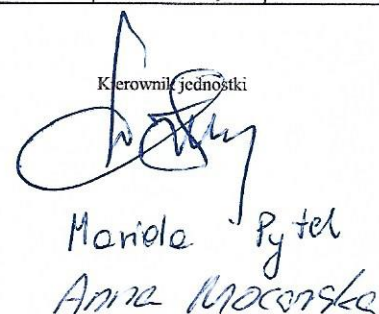 Kierownik jednostki
Mariola Pytel
Anna Mocarska